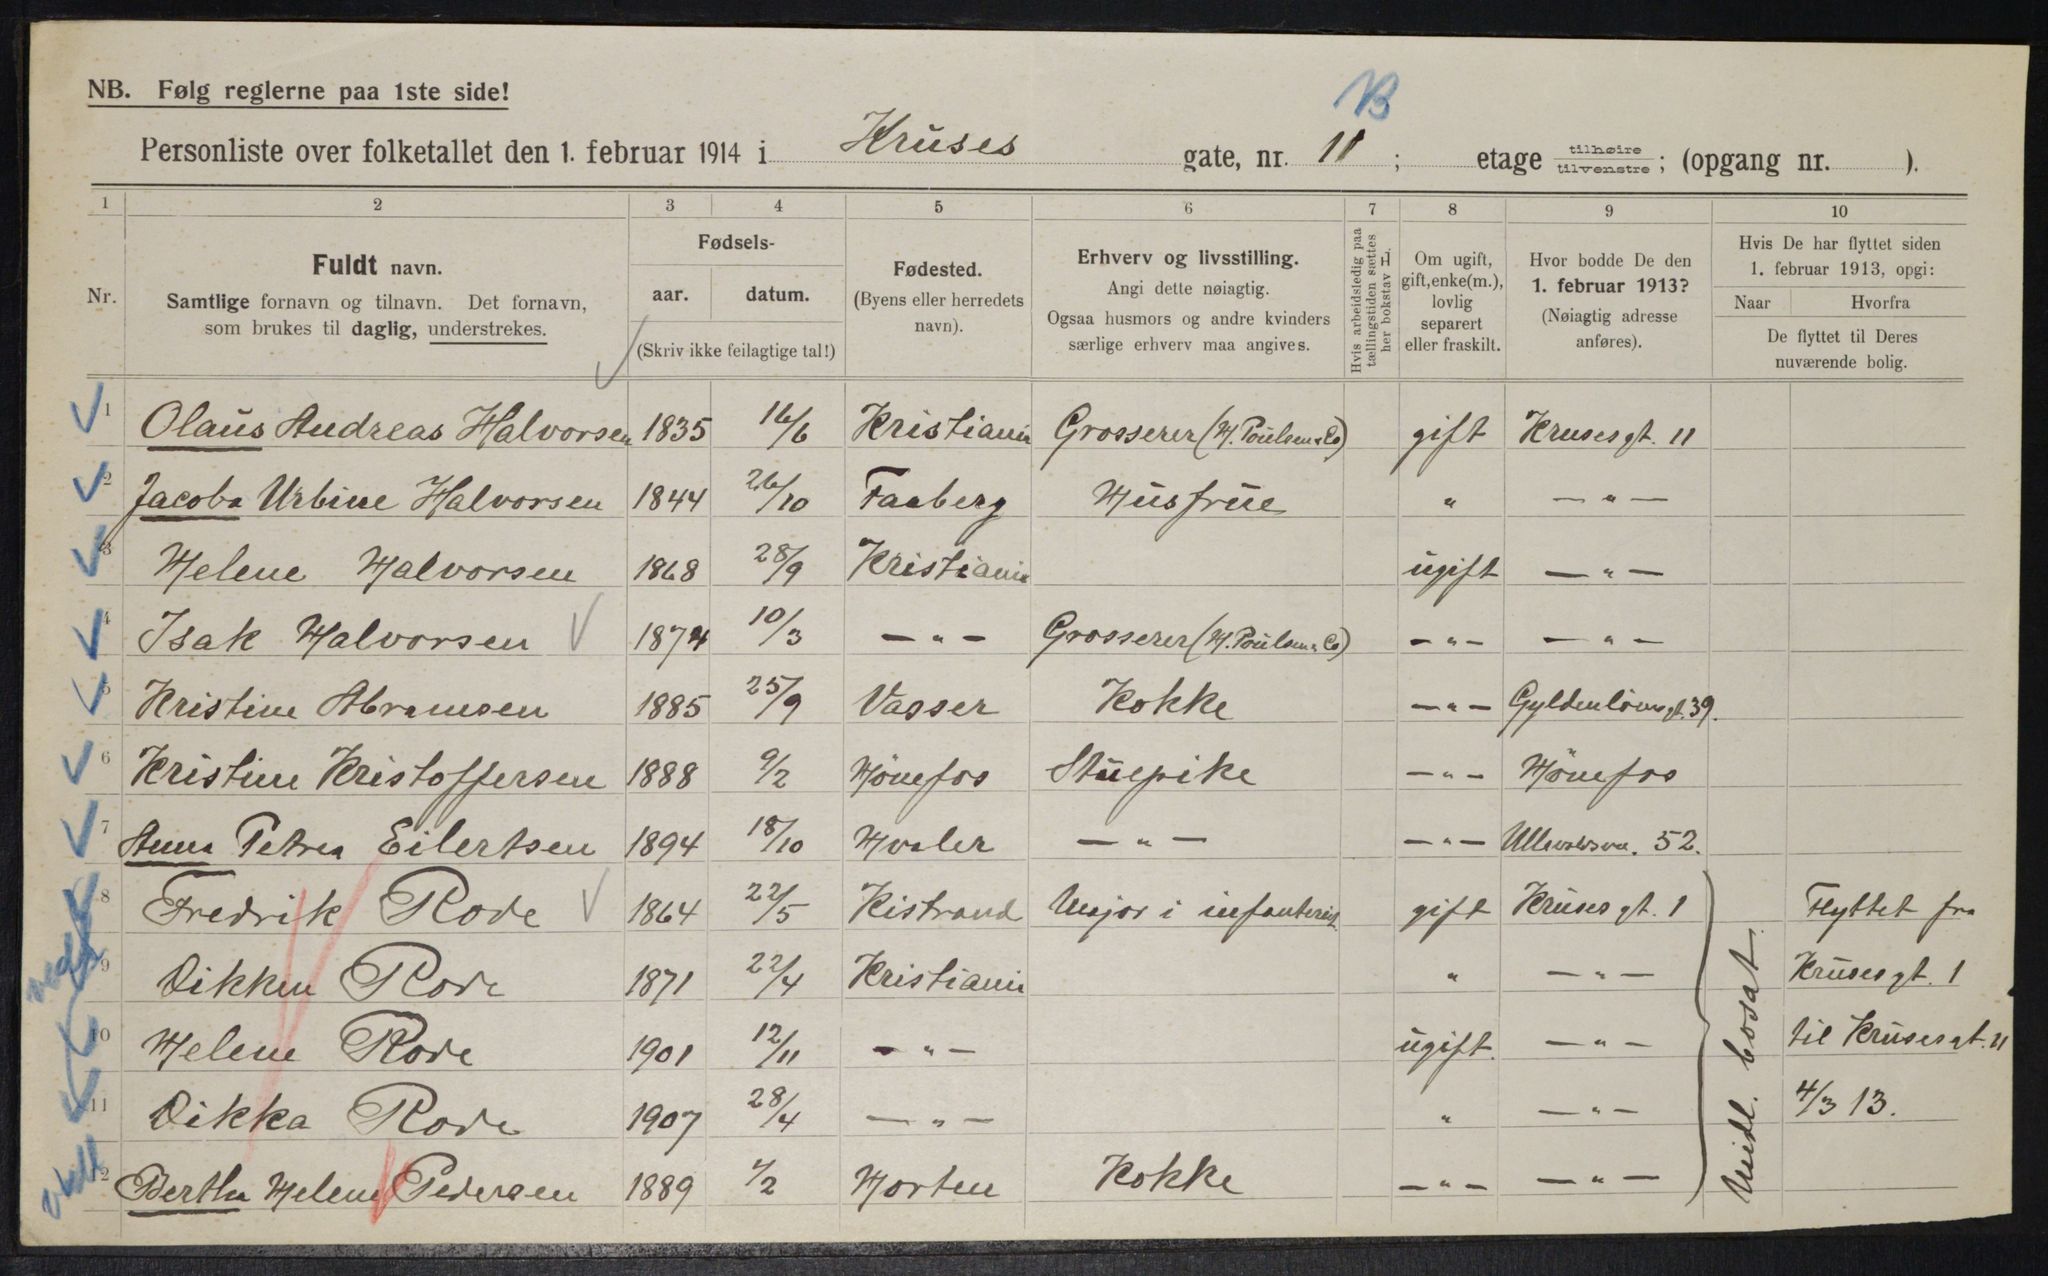 NB. Følg reglerne paa 1ste side!
B
Personliste over folketallet den 1. februar 1914 i Kruses gate, nr. 11 ; etage tilhøire/tilvenstre ; (opgang nr. ).
1 2 3 4 5 6 7 8 9 10
Nr.
Fuldt navn.
Samtlige fornavn og tilnavn. Det fornavn,
som brukes til daglig, understrekes.
Fødsels-
aar. datum.
(Skriv ikke feilagtige tal!)
Fødested.
(Byens eller herredets
navn).
Erhverv og livsstilling.
Angi dette nøiagtig.
Ogsaa husmors og andre kvinders
særlige erhverv maa angives.
Hvis arbeidsledig paa
tællingstiden sættes
her bokstav H.
Om ugift,
gift, enke(m.),
lovlig
separert
eller fraskilt.
Hvor bodde De den
1. februar 1913?
(Nøiagtig adresse
anføres).
Hvis De har flyttet siden
1. februar 1913, opgi:
Naar Hvorfra
De flyttet til Deres
nuværende bolig.
1 Olaus Andreas Halvorsen 1835 16/6 Kristiania Grosserer (H. Poulsen & Co) gift Krusesgt. 11
2 Jacoba Urbine Halvorsen 1844 26/10 Faaberg Husfrue " — " —
3 Helene Halvorsen 1868 28/9 Kristiania ugift — " —
4 Isak Halvorsen 1874 10/3 — " — Grosserer (H. Poulsen & Co) — " — — " —
5 Kristine Abramsen 1885 25/9 Vasser Kokke — " — Gyldenløvesgt. 39.
6 Kristine Kristoffersen 1888 9/2 Hönefos Stuepike — " — Hönefos
7 Anna Petrea Eilertsen 1894 18/10 Hvaler — " — — " — Ullevoldsvn. 52.
8 Fredrik Rode 1864 22/5 Kistrand Major i infanteriet gift Krusesgt. 1 Flyttet fra
9 Dikken Rode 1871 22/4 Kristiania " — " — Krusesgt. 1
10 Helene Rode 1901 12/11 — " — ugift. — " — til Krusesgt. 11
11 Dikka Rode 1907 28/4 — " — " — " — 4/3 13.
12 Bertha Helene Pedersen 1889 /2 Horten Kokke — " — — " —
Midl. bosat.